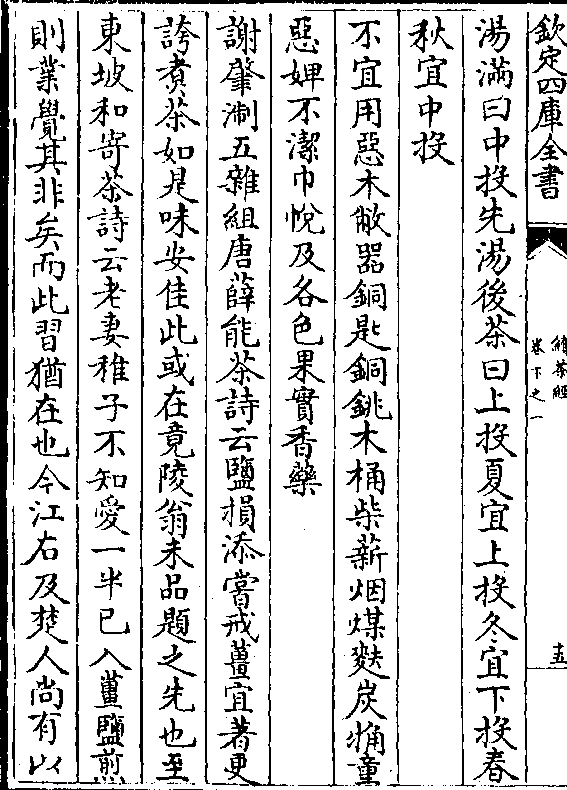 欽定四庫全書
續茶經
卷下之一
十五
湯滿曰中投先湯後茶曰上投夏宜上投冬宜下投春
秋宜中投
不宜用惡木敝器銅匙銅銚木桶柴薪烟煤麩炭觕童
惡婢不潔巾帨及各色果實香藥
謝肇淛五雜組唐薛能茶詩云鹽損添嘗戒薑宜著更
誇煑茶如是味安佳此或在竟陵翁未品題之先也至
東坡和寄茶詩云老妻稚子不知愛一半已入薑鹽煎
則業覺其非矣而此習猶在也今江右及楚人尚有以